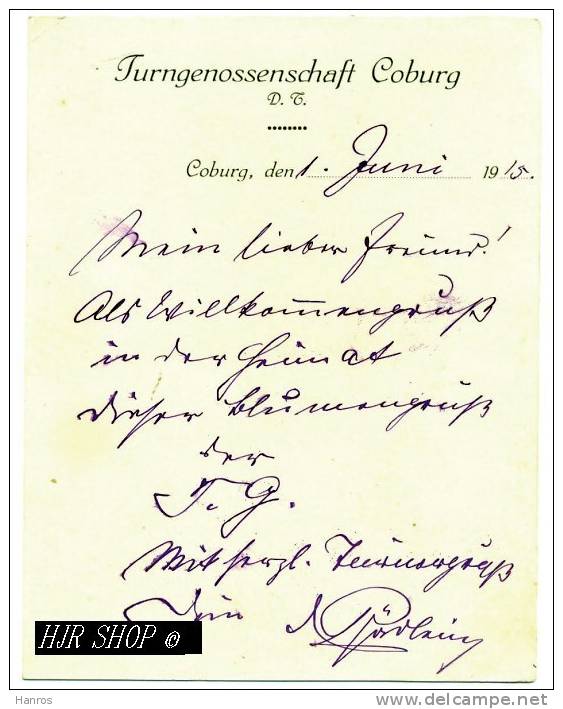 Turngenossenschaft Coburg
D. T.
Coburg, den 1. Juni 1915.
Mein lieber Freund!
Als Willkommengruß
in der Heimat
dieser Blumengruß
der
T. G.
Mit herzl. Turnergruß
Dein
HJR SHOP ©
Hanros
delcampe.net